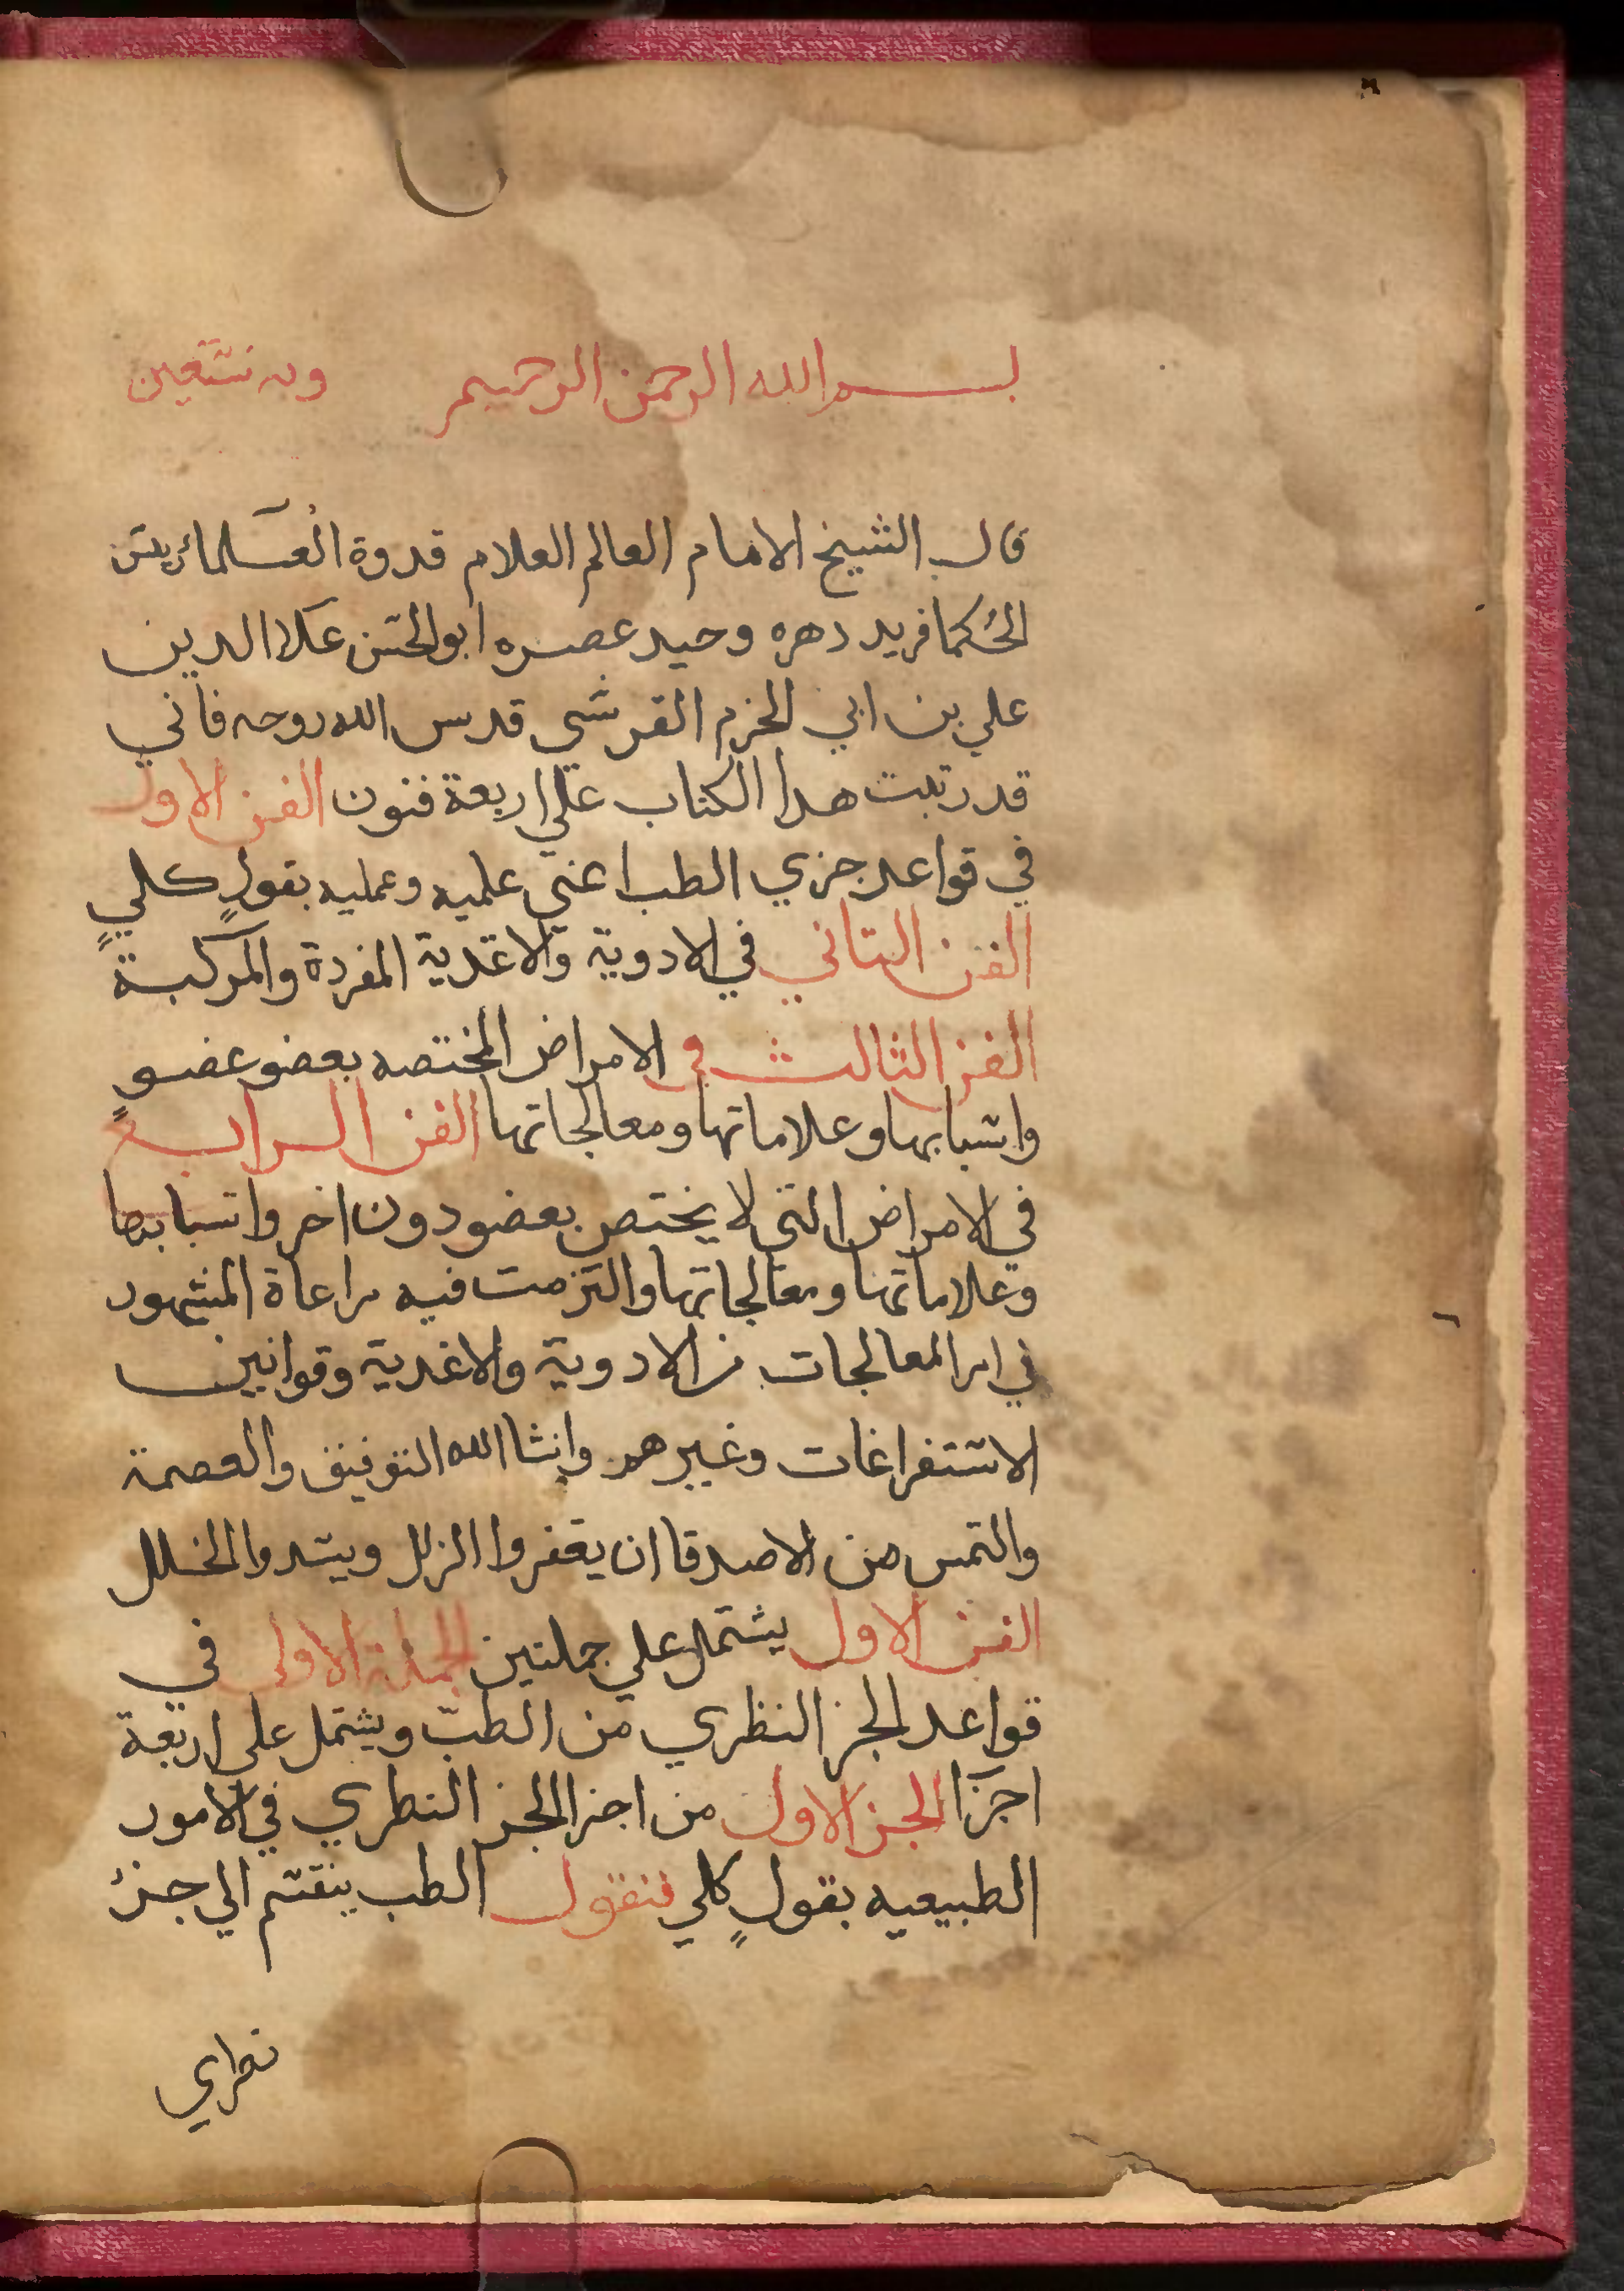 بسم الله الرحمن الرحيم وبه نستعين
قال الشيخ الامام العالم العلام قدوة العلما رئيس
الحكما فريد دهره وحيد عصره ابو الحسن علا الدين
علي بن ابي الحزم القرشي قدس الله روحه فاني
قد رتبت هدا الكتاب علي اربعة فنون الفن الاول
في قواعد جزي الطب اعني علميه وعمليه بقولٍ كليٍ
الفن التاني في الادوية والاغدية المفردة والمركبة
الفن الثالث في الامراض المختصه بعضو عضوٍ
واسبابها وعلاماتها ومعالجاتها الفن الرابع
في الامراض التي لا يختص بعضو دون اخر واسبابها
وعلاماتها ومعالجاتها والتزمت فيه مراعاة المشهور
في امر المعالجات من الادوية والاغدية وقوانين
الاستفراغات وغيرهم وانشا الله التوفيق والعصمة
والتمس من الاصدقا ان يغفروا الزلل ويسدوا الخلل
الفن الاول يشتمل علي جملتين الجملة الاولى في
قواعد الجز النظري من الطب ويشتمل علي اربعة
اجزا الجز الاول من اجزا الجز النطري في الامور
الطبيعيه بقولٍ كلي فنقول الطب ينقسم الي جزء
نطري